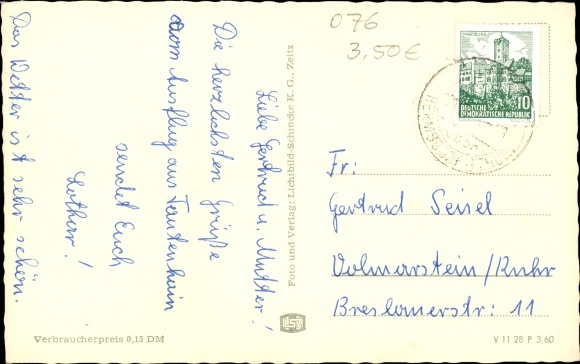 Liebe Gertrud u. Mutter!
Die herzlichsten Grüße
vom Ausflug aus Tautenhain
sendet Euch
Lothar!
Das Wetter ist sehr schön.
Verbraucherpreis 0,15 DM
Foto und Verlag: Lichtbild-Schincke K. G., Zeitz
076
3,50€
WARTBURG
10
DEUTSCHE
DEMOKRATISCHE REPUBLIK
Fr:
Gertrud Seisel
Volmarstein/Ruhr
Breslauerstr: 11
V 11 28 P 3,60